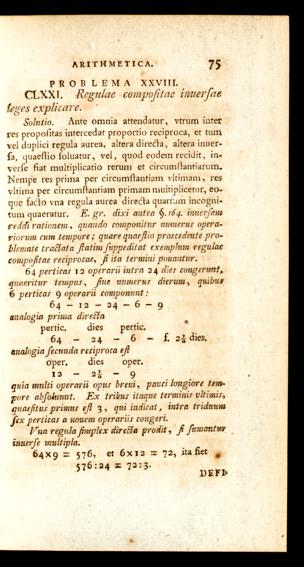 ARITHMETICA. 75
PROBLEMA XXVIII.
CLXXI. Regulae compoſitae inuerſae
leges explicare.
Solutio. Ante omnia attendatur, vtrum inter
res propoſitas intercedat proportio reciproca, et tum
vel duplici regula aurea, altera directa, altera inuer-
ſa, quaeſtio ſoluatur, vel, quod eodem recidit, in-
verſe fiat multiplicatio rerum et circumſtantiarum.
Nempe res prima per circumſtantiam vltimam, res
vltima per circumſtantiam primam multiplicetur, eo-
que facto vna regula aurea directa quartum incogni-
tum quaeratur. E. gr. dixi antea §. 164. inuerſam
reddi rationem, quando componitur numerus opera-
riorum cum tempore; quare quaeſtio praecedente pro-
blemate tractata ſtatim ſuppeditat exemplum regulae
compoſitae reciprocae, ſi ita termini ponantur.
64 perticas 12 operarii intra 24 dies congerunt,
quaeritur tempus, ſiue numerus dierum, quibus
6 perticas 9 operarii componunt:
64 — 12 — 24 — 6 — 9
analogia prima directa
pertic. dies pertic.
64 — 24 — 6 — f. 2¼ dies.
analogia ſecunda reciproca eſt
oper. dies oper.
12 — 2¼ — 9
quia multi operarii opus breui, pauci longiore tem-
pore abſoluunt. Ex tribus itaque terminis vltimis,
quaeſitus primus eſt 3, qui indicat, intra triduum
ſex perticas a nouem operariis congeri.
Vna regula ſimplex directa prodit, ſi ſumantur
inuerſe multipla.
64×9 = 576, et 6×12 = 72, ita fiet
576:24 = 72:3.
DEFI-